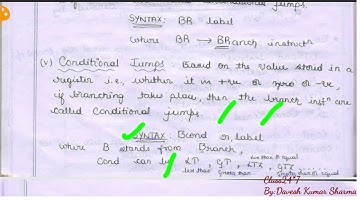 Jumps.
SYNTAX: BR label
where BR → BRanch instructn
(v) Conditional Jumps: Based on the value stored in a
register i.e., whether it is +ve or zero or -ve,
if branching take place, then the branch instn are
called Conditional jumps.
SYNTAX: Bcond or, label
where B stands from Branch,
Cond can be LT, GT, LTE, GTE
less than greater than less than or equal greater than or equal
Class24*7
By:Davesh Kumar Sharma